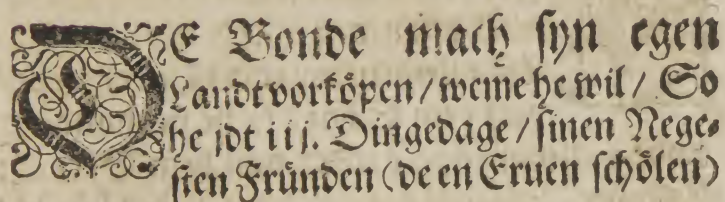 DE Bonde mach ſyn egen
Landt vorköpen / weme he wil / So
he jdt iij. Dingedage / ſinen Nege⸗
ſten Fründen (de en Eruen ſchölen)